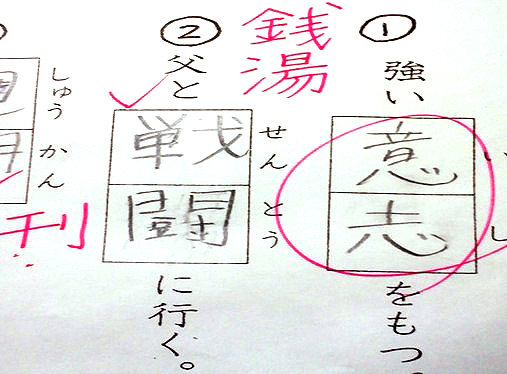 いし
①強い意志をもつ。
銭湯
せんとう
②父と戦闘に行く。
しゅうかん
刊